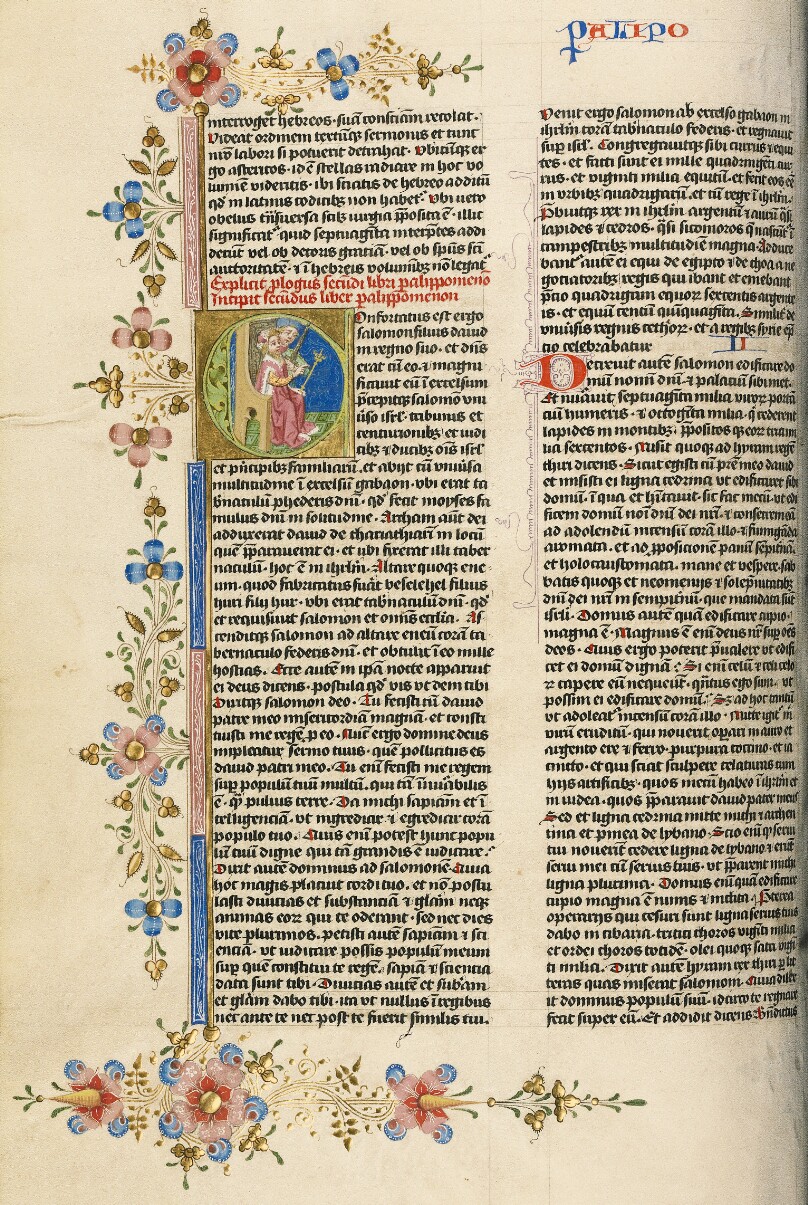 Palipo
interroget hebreos. suā consciam recolat.
Videat ordinem textūqꝫ sermonis et tunc
nr̄o labori si potuerit detrahat. Vbicūqꝫ er
go asteriscos. id ē stellas radiare in hoc vo
lumīe videritis. ibi sciatis de hebreo additū
qd̓ in latinis codicibꝫ non habet᷑. Vbi vero
obelus tn̄sversa scꝫ virgia p̄posita ē. illic
significat᷑ quid septuaginta interp̄tes addi
derūt vel ob decoris gratiā. vel ob spūs sc̄i
auctoritatē. ⁊ ī hebreis voluminibꝫ nō legit᷑
Explicit plogus secūdi libri palippomeno
Incipit secūdus liber palippomenon
Confortatus est ergo
salomon filius dauid
in regno suo. et dn̄s
erat cū eo. ⁊ magni
ficauit eū ī excelsum
p̄cepitqꝫ salomō vni
ūso isrl̄. tribunis et
centurionibꝫ. et iudi
cibꝫ ⁊ ducibꝫ oīs isrl̄
et pn̄cipibꝫ familiarū. et abijt cū vniūsa
multitudine ī excelsū gabaon. vbi erat ta
bn̄aculū ꝓhederis dn̄i. qd̓ fecit moyses fa
mulus dn̄i in solitudine. Archam aūt dei
adduxerat dauid de chariathiarī in locū
quē p̄parauerat ei. et vbi fixerat illi taber
naculū. hoc ē in ihrl̄m. Altare quoqꝫ ene
um. quod fabricatus fuāt beselehel filius
huri filij hur. vbi erat tabn̄aculū dn̄i. qd̓
et requisiuit salomon et omīs eccl̄ia. As
cenditqꝫ salomon ad altare eneū corā ta
bernaculo federis dn̄i. et obtulit ī eo mille
hostias. Ecce autē in ip̄a nocte apparuit
ei deus dicens. postula qd̓ vis vt dem tibi
Dixitqꝫ salomon deo. Tu fecisti cū dauid
patre meo misericordiā magnā. et consti
tuisti me regē p eo. Nūc ergo domine deus
impleatur sermo tuus. quē pollicitus es
dauid patri meo. Tu enī fecisti me regem
sup populū tuū multū. qui tā īnuābilis
ē. q̄ puluis terre. Da michi sapiam et ī
telligenciā. vt ingrediar ⁊ egrediar corā
populo tuo. Quis enī potest hunc popu
lū tuū digne qui tā grandis ē iudicare.
Dixit autē dominus ad salomonē. Quia
hoc magis placuit cordi tuo. et nō postu
lasti diuicias et substanciā ⁊ gl̄am neqꝫ
animas eoꝝ qui te oderant. sed nec dies
vite plurimos. petisti autē sapiam ⁊ sci
enciā. vt iudicare possis populū meum
sup quē constitui te regē. sapīa ⁊ sciencia
data sunt tibi. Diuicias autē et sub̄am
et gl̄am dabo tibi. ita vt nullus ī regibus
nec ante te nec post te fuerit similis tui.
Venit ergo salomon ab excelso gabaon in
ihrl̄m corā tab̄naculo federis. et regnauit
sup isrl̄. Congregauitqꝫ sibi currus ⁊ equi
tes. et facti sunt ei mille quadringēti cur
rus. et viginti milia equitū. et fecit eos eē
in vrbibꝫ quadrigaꝝ. et cū rege ī ihrl̄m.
Pbuitqꝫ rex in ihrl̄m argentū ⁊ aurū qͣsi
lapides ⁊ cedros. qͣsi sicomoros q̄ nascūt᷑ ī
campestribꝫ multitudīe magna. Adduce
bant᷑ autē ei equi de egipto ⁊ de choa a ne
gociatoribꝫ regis qui ibant et emebant
p̄cio quadrigam equoꝝ sexcentis argente
is. et equū centū quīquagīta. Similit᷑ de
vniūsis regnis cethoꝝ. et a regibꝫ syrie ep̄
tio celebrabatur
II
Decreuit autē salomon edificare do
mū nomī dn̄i. ⁊ palaciū sibimet.
Et nūāuit septuagīta milia viroꝝ portā
ciū humeris. ⁊ octogīta milia. q̄ cederent
lapides in montibꝫ. p̄positos qꝫ eoꝝ tria mi
lia sexcentos. Misit quoqꝫ ad hyram regē
thiri dicens. Sicut egisti cū pr̄e meo dauid
et misisti ei ligna cedrina vt edificaret sibi
domū. ī qua et h̄itauit. sic fac mecū. vt edi
ficem domū noī dn̄i dei nr̄i. ⁊ consecrem eā
ad adolendū incensū corā illo. ⁊ fumigāda
aromata. et ad ꝓposicionē panū sepit̄na.
et holocaustomata. mane et vespere. sab
batis quoqꝫ et neomenijs ⁊ solēpnitatibꝫ
dn̄i dei nr̄i in sempit̄nū. que mandata sūt
isrl̄i. Domus autē quā edificare cupio.
magna ē. Magnus ē enī deus nr̄ sup oēs
deos. Quis ergo poterit p̄ualere vt edifi
cet ei domū dignā? Si enī celū ⁊ celi celo
ꝝ capere eū nequeūt. qn̄tus ego sum. vt
possim ei edificare domū. Sꝫ ad hoc tantū
vt adoleat᷑ incensū corā illo. Mitte igit᷑ m̄
virū eruditū. qui nouerit opari in auro et
argento ere ⁊ ferro. purpura coccino. et ia
cincto. et qui sciat sculpere celaturas cum
hijs artificibꝫ. quos mecū habeo ī ihrl̄m et
in iudea. quos p̄parauit dauid pater meus
Sed et ligna cedrina mitte michi ⁊ archeu
tina et pinea de lybano. Scio enī q̄ serui
tui nouerūt cedere ligna de lybano. ⁊ erūt
serui mei cū seruis tuis. vt p̄parent᷑ michi
ligna plurima. Domus enī quā edificare
cupio magna ē nimis ⁊ inclita. Preterea
operarijs qui cesuri sunt ligna seruis tuis
dabo in cibaria. tritici choros vigīti milia
et ordei choros totidē. olei quoqꝫ sata vigī
ti milia. Dixit autē hyram rex thiri p lit
teras quas miserat salomoni. Quia dilex
it dominus populū suū. idcirco te regnare
fecit super eū. Et addidit dicens. Bn̄dictus